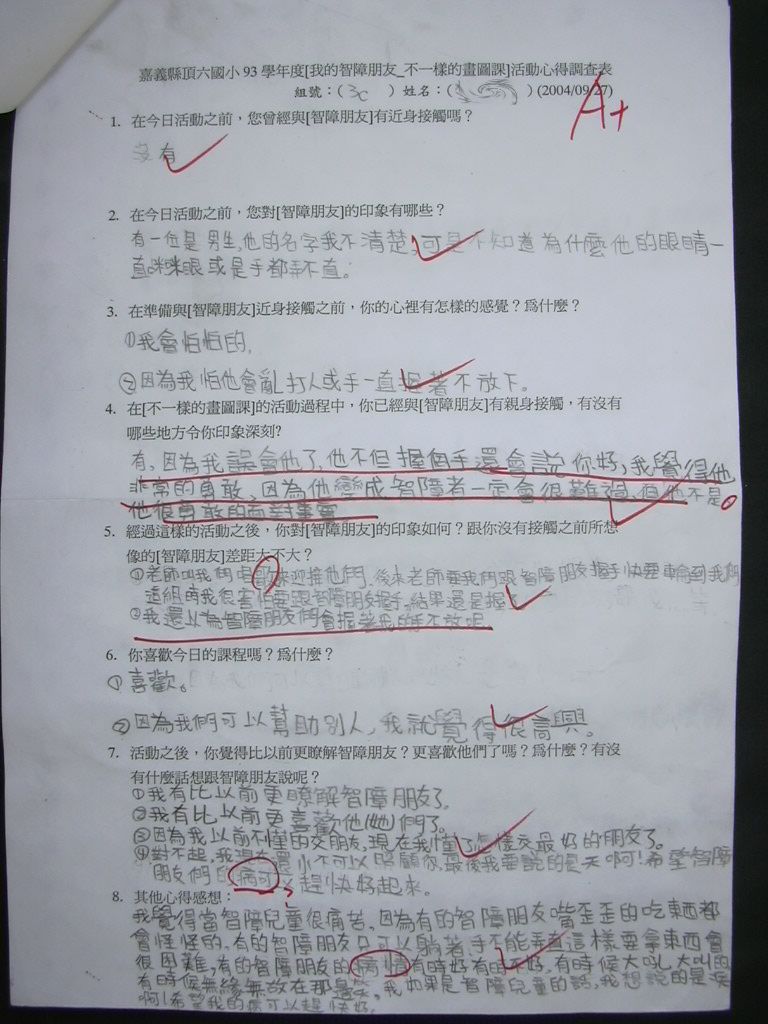 嘉義縣頂六國小93學年度[我的智障朋友_不一樣的畫圖課]活動心得調查表
組號：( 3c ) 姓名：( ) (2004/09/27)
A+
1. 在今日活動之前，您曾經與[智障朋友]有近身接觸嗎？
沒有
2. 在今日活動之前，您對[智障朋友]的印象有哪些？
有一位是男生,他的名字我不清楚,可是不知道為什麼他的眼睛一
直咪咪眼或是手都弄不直。
3. 在準備與[智障朋友]近身接觸之前，你的心裡有怎樣的感覺？爲什麼？
①我會怕怕的,
②因為我怕他會亂打人或手一直握著不放下。
4. 在[不一樣的畫圖課]的活動過程中，你已經與[智障朋友]有親身接觸，有沒有
哪些地方令你印象深刻?
有,因為我誤會他了,他不但握個手還會說你好,我覺得他
非常的勇敢,因為他變成智障者一定會很難過,但他不是。
他很勇敢的面對事實
5. 經過這樣的活動之後，你對[智障朋友]的印象如何？跟你沒有接觸之前所想
像的[智障朋友]差距大不大？
①老師叫我們唱歌來迎接他們,後來老師要我們跟智障朋友握手快要輪到我們
這組時我很害怕要跟智障朋友握手,結果還是握了
②我還以為智障朋友們會握著我的手不放呢
6. 你喜歡今日的課程嗎？爲什麼？
①喜歡。
②因為我們可以幫助別人,我就覺得很高興。
7. 活動之後，你覺得比以前更瞭解智障朋友？更喜歡他們了嗎？爲什麼？有沒
有什麼話想跟智障朋友說呢？
①我有比以前更瞭解智障朋友了。
②我有比以前更喜歡他(她)們了。
③因為我以前不懂的交朋友,現在我懂了怎樣交最好的朋友了。
④對不起,我還小不可以照顧你,最後我要說的是天啊!希望智障
朋友們的病可以趕快好起來。
8. 其他心得感想：
我覺得當智障兒童很痛苦,因為有的智障朋友嘴歪歪的吃東西都
會怪怪的,有的智障朋友只可以躺著,手不能弄直這樣要拿東西會
很困難,有的智障朋友的病情有時好有時不好,有時候大吼大叫的
有時候無緣無故在那邊笑,我如果是智障兒童的話,我想說的是天
啊!希望我的病可以趕快好。